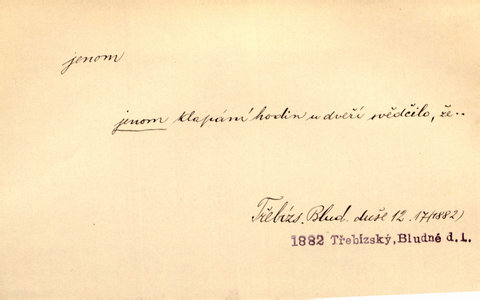 jenom
jenom klapání hodin u dveří svědčilo, že..
Třebízs. Blud. duše 12.17(1882)
1882 Třebízský, Bludné d.i.